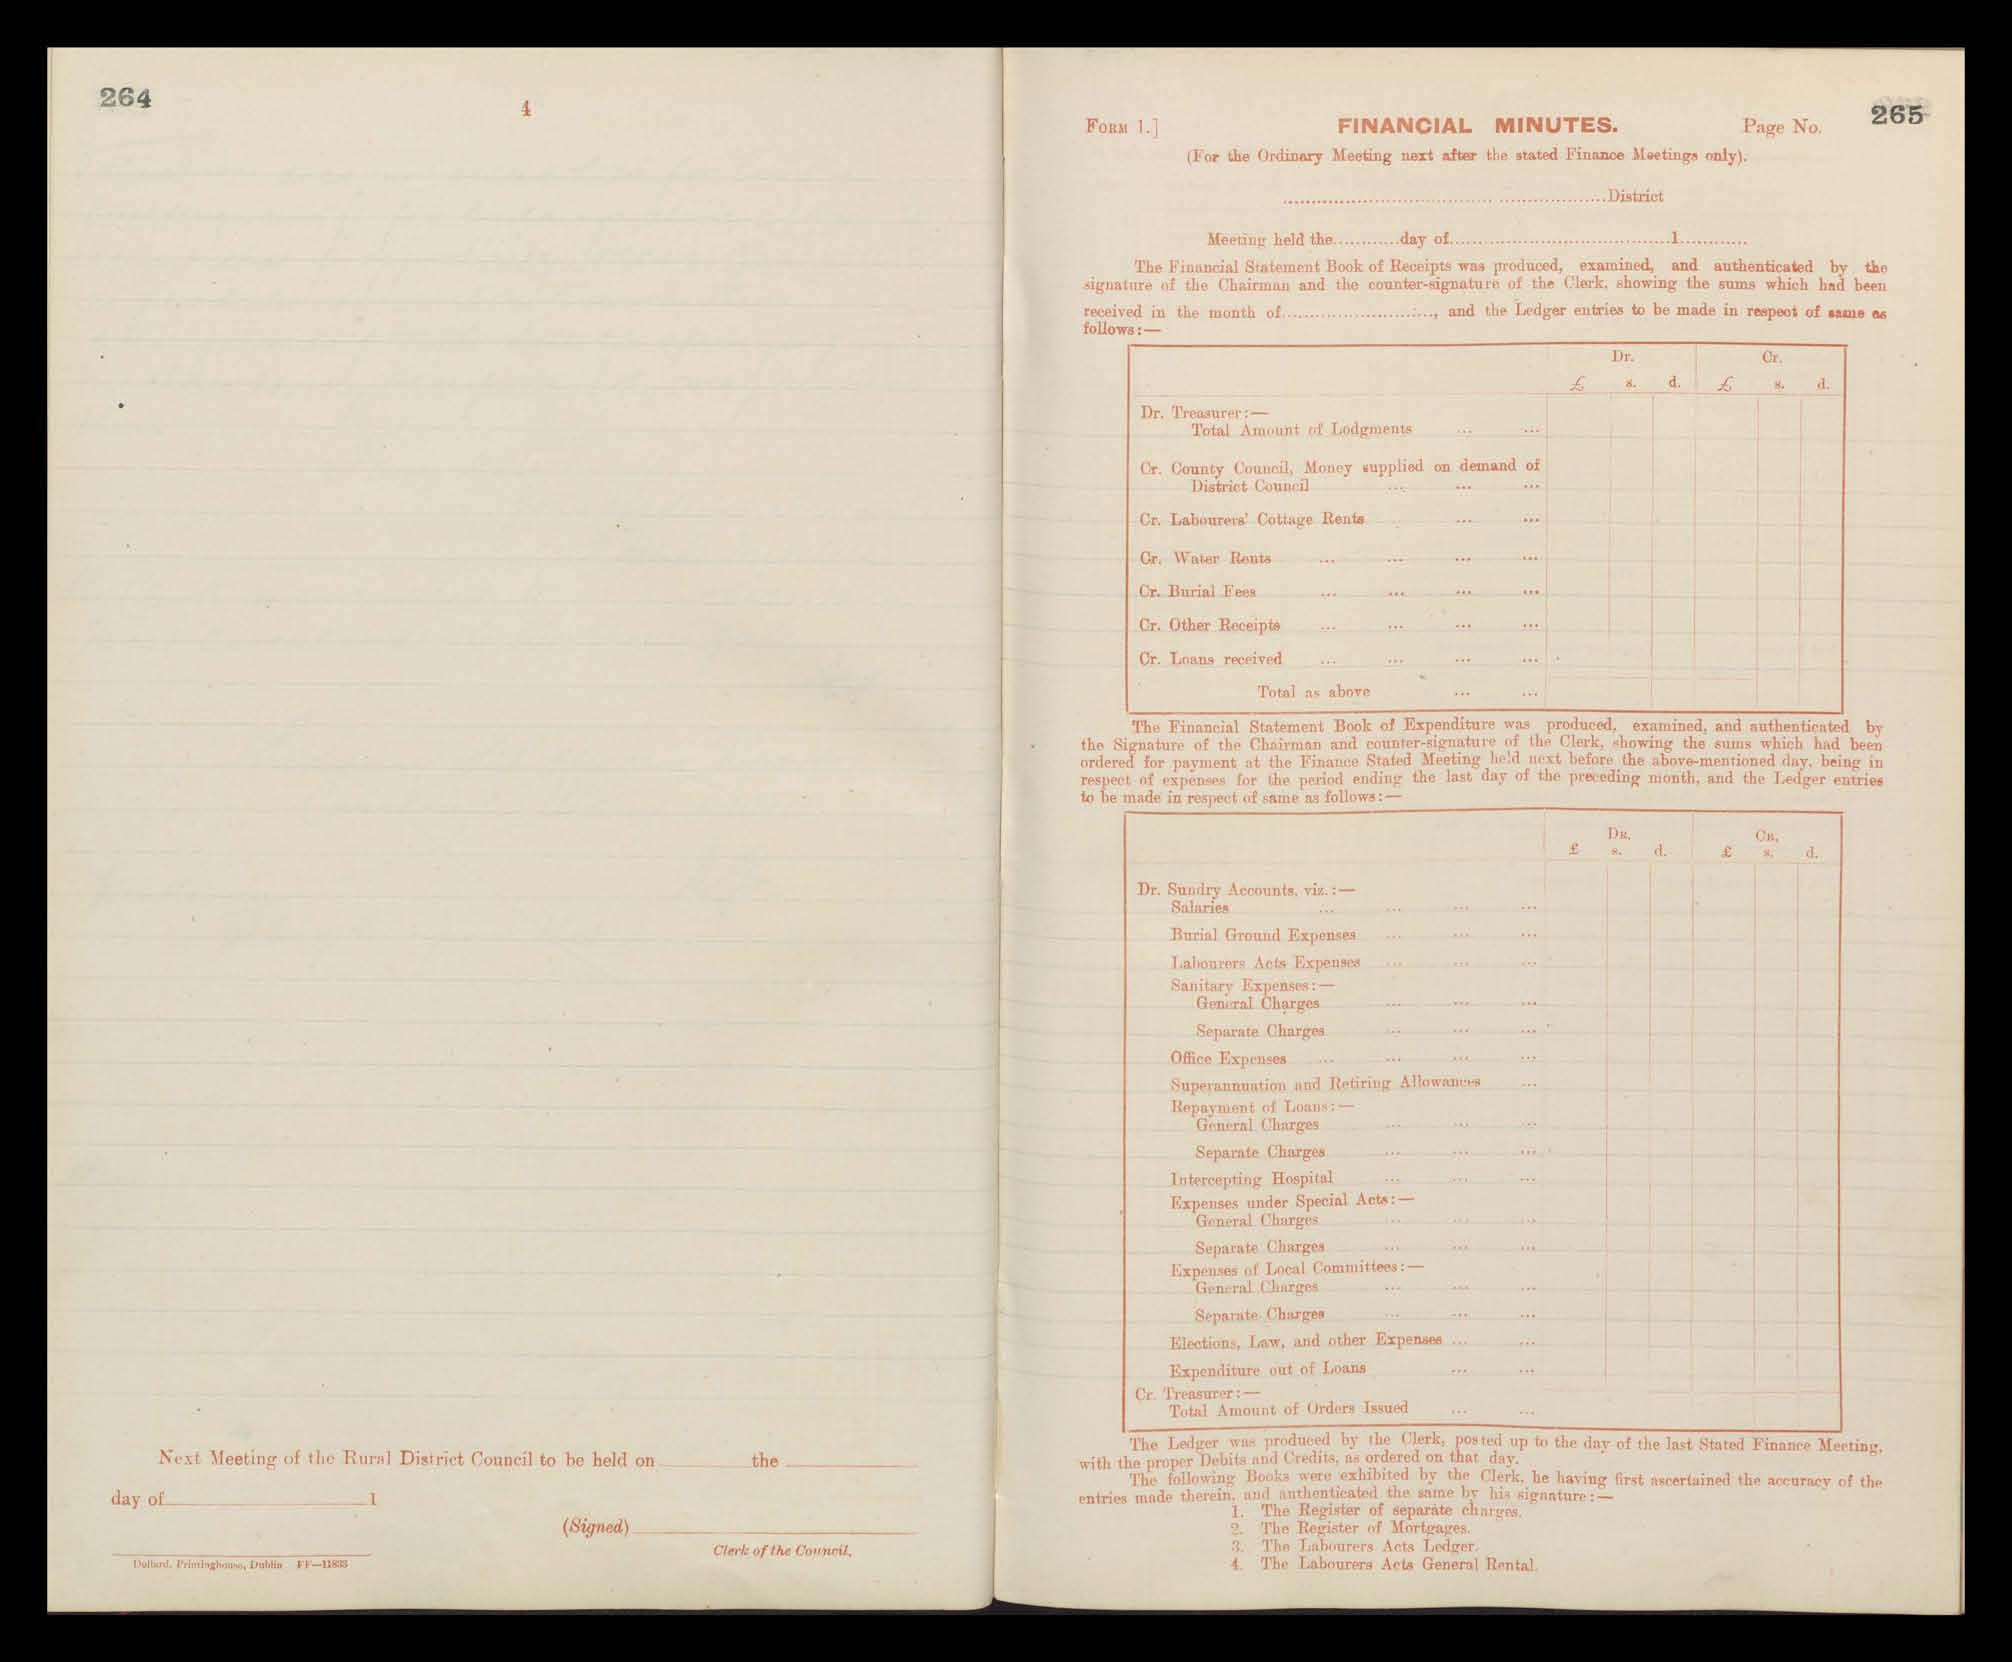 264
4
Next Meeting of the Rural District Council to be held on the
day of 1
(Signed)
Clerk of the Council,
Dollard, Printinghouse, Dublin FF—11833
FORM 1.] FINANCIAL MINUTES. Page No. 265
(For the Ordinary Meeting next after the stated Finance Meetings only).
District
Meeting held the day of 1
The Financial Statement Book of Receipts was produced, examined, and authenticated by the
signature of the Chairman and the counter-signature of the Clerk, showing the sums which had been
received in the month of , and the Ledger entries to be made in respect of same as
follows:—
Dr. Cr.
£ s. d. £ s. d.
Dr. Treasurer:—
Total Amount of Lodgments ... ...
Cr. County Council, Money supplied on demand of
District Council ... ... ...
Cr. Labourers' Cottage Rents ... ...
Cr. Water Rents ... ... ... ...
Cr. Burial Fees ... ... ... ...
Cr. Other Receipts ... ... ... ...
Cr. Loans received ... ... ... ...
Total as above ... ...
The Financial Statement Book of Expenditure was produced, examined, and authenticated by
the Signature of the Chairman and counter-signature of the Clerk, showing the sums which had been
ordered for payment at the Finance Stated Meeting held next before the above-mentioned day, being in
respect of expenses for the period ending the last day of the preceding month, and the Ledger entries
to be made in respect of same as follows:—
DR. CR.
£ s. d. £ s. d.
Dr. Sundry Accounts, viz.:—
Salaries ... ... ... ...
Burial Ground Expenses ... ... ...
Labourers Acts Expenses ... ... ...
Sanitary Expenses:—
General Charges ... ... ...
Separate Charges ... ... ...
Office Expenses ... ... ... ...
Superannuation and Retiring Allowances ...
Repayment of Loans:—
General Charges ... ... ...
Separate Charges ... ... ...
Intercepting Hospital ... ... ...
Expenses under Special Acts:—
General Charges ... ... ...
Separate Charges ... ... ...
Expenses of Local Committees:—
General Charges ... ... ...
Separate Charges ... ... ...
Elections, Law, and other Expenses ... ...
Expenditure out of Loans ... ...
Cr. Treasurer:—
Total Amount of Orders Issued ... ...
The Ledger was produced by the Clerk, posted up to the day of the last Stated Finance Meeting,
with the proper Debits and Credits, as ordered on that day.
The following Books were exhibited by the Clerk, he having first ascertained the accuracy of the
entries made therein, and authenticated the same by his signature:—
1. The Register of separate charges.
2. The Register of Mortgages.
3. The Labourers Acts Ledger.
4. The Labourers Acts General Rental.